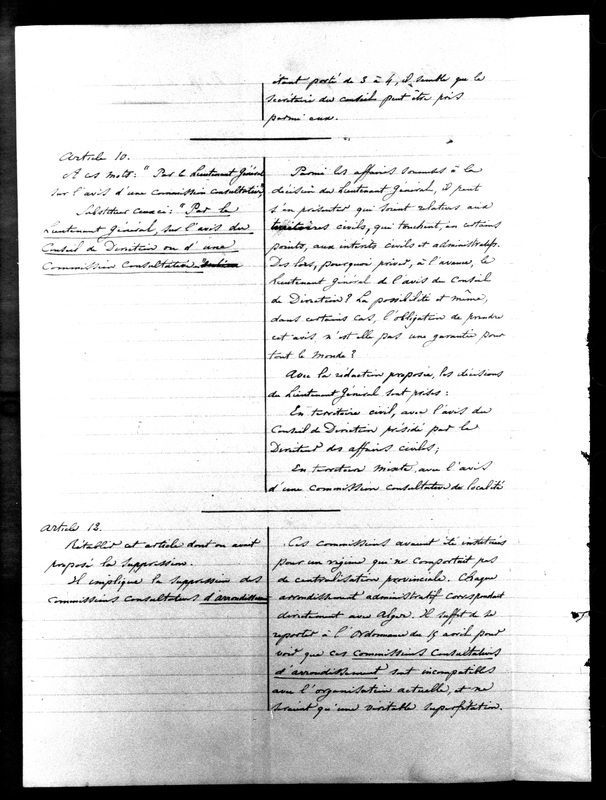 étant porté de 3 à 4, il semble que le
secrétaire du conseil peut être pris
parmi eux.
Article 10.
A ces mots: "Par le Lieutenant Général
sur l'avis d'une commission consultative,"
Substituer ceux-ci: "Par le
Lieutenant Général, sur l'avis du
Conseil de Direction ou d'une
Commission Consultative."
Parmi les affaires soumises à la
décision du Lieutenant Général, il peut
s'en présenter qui soient relatives aux
territoires civils, qui touchent, en certains
points, aux intérêts civils et administratifs.
Dès lors, pourquoi priver, à l'avance, le
Lieutenant Général de l'avis du Conseil
de Direction? La possibilité et même,
dans certains cas, l'obligation de prendre
cet avis n'est-elle pas une garantie pour
tout le monde?
Avec la rédaction proposée, les décisions
du Lieutenant Général sont prises:
En territoire civil, avec l'avis du
Conseil de Direction présidé par le
Directeur des affaires civiles;
En territoire mixte, avec l'avis
d'une Commission consultative de localité
Article 12.
Rétablir cet article dont on avait
proposé la suppression.
Il implique la suppression des
Commissions Consultatives d'arrondissement
Ces commissions avaient été instituées
pour un régime qui ne comportait pas
de centralisation provinciale. Chaque
arrondissement administratif correspondait
directement avec Alger. Il suffit de se
reporter à l'Ordonnance du 15 avril pour
voir que ces Commissions Consultatives
d'arrondissement sont incompatibles
avec l'organisation actuelle, et ne
seraient qu'une véritable superfétation.